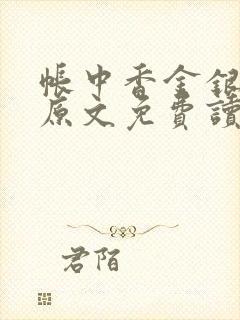 帳中香金銀
原文免費讀
君陌